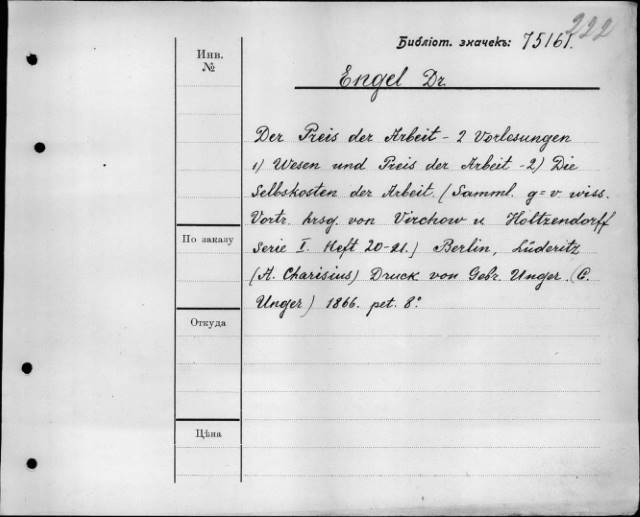 222
Библіот. значекъ: 75161.
Инв.
№
Engel Dr.
Der Preis der Arbeit - 2 Vorlesungen
1) Wesen und Preis der Arbeit - 2) Die
Selbskosten der Arbeit. (Samml. g=v. wiss.
Vortr. hrsg. von Virchow u. Holtzendorff
Serie I. Heft 20-21.) Berlin, Lüderitz
(A. Charisius) Druck von Gebr. Unger. (C.
Unger) 1866. pet. 8°
По заказу
Откуда
Цѣна